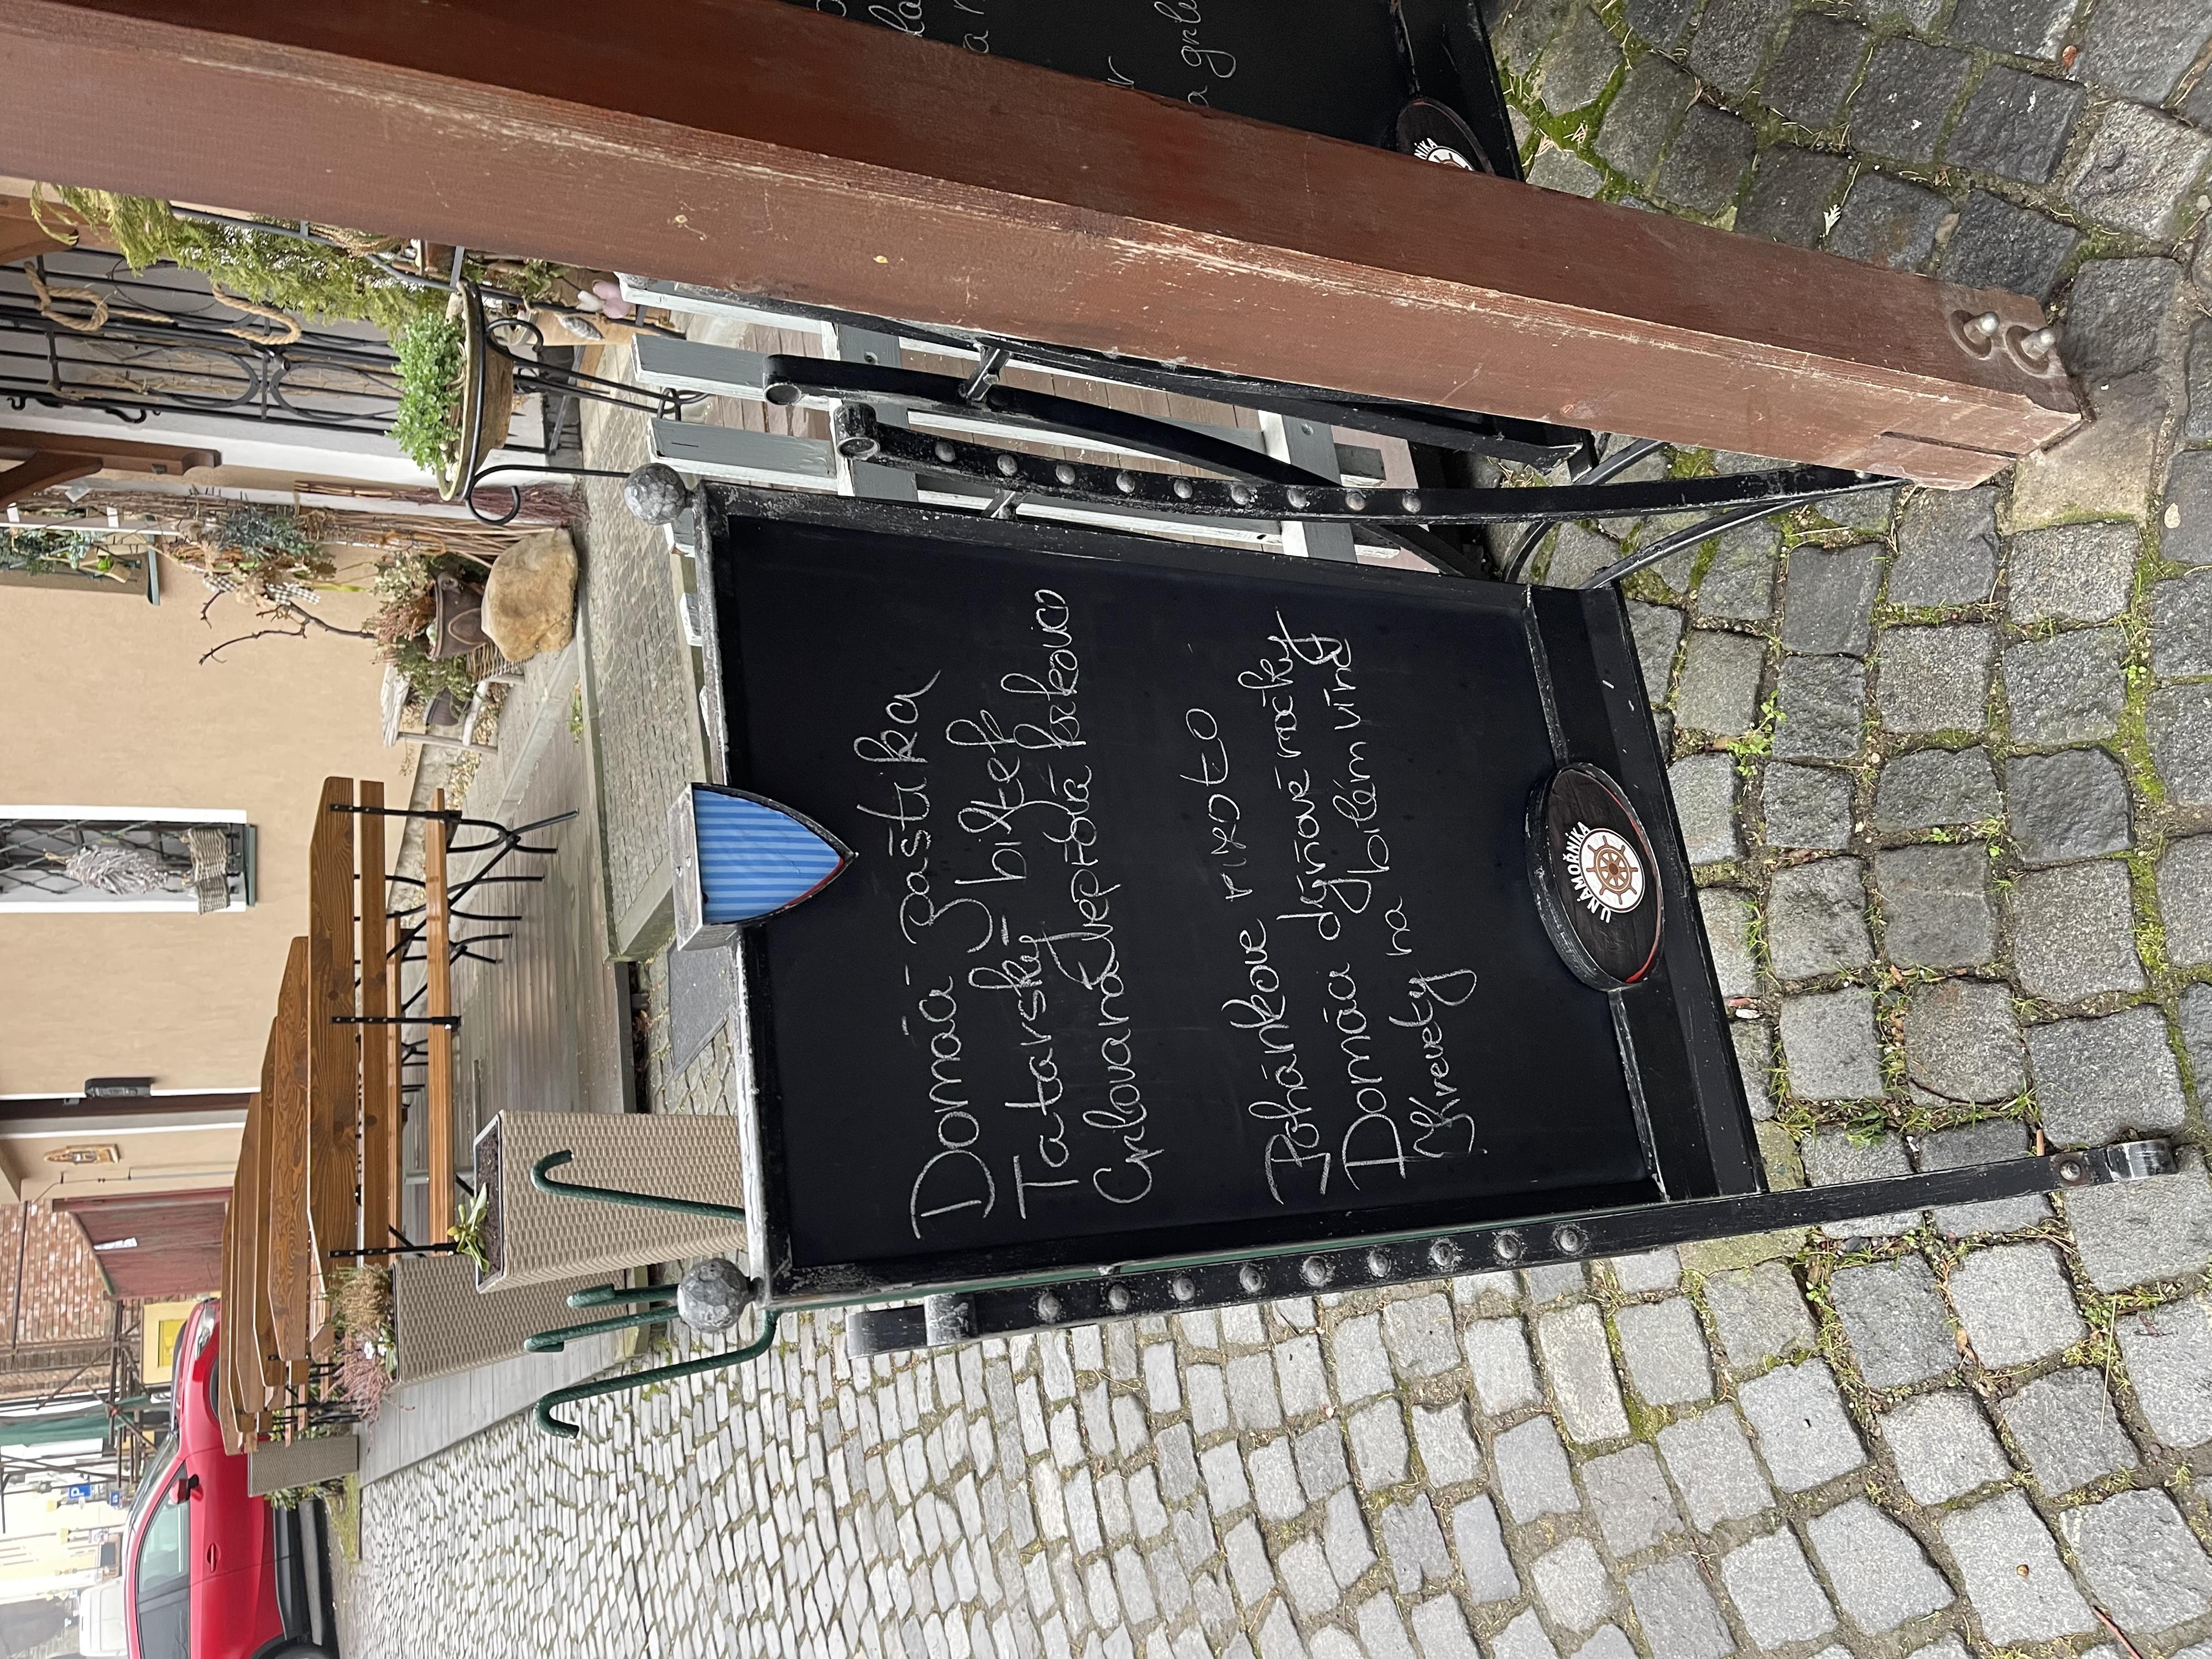 Domácí paštika
Tatarský biftek
Grilovaná vepřová krkovice
Pohánkové rizoto
Domácí dýňové nočky
Krevety na bílém víně
U NÁMOŘNÍKA